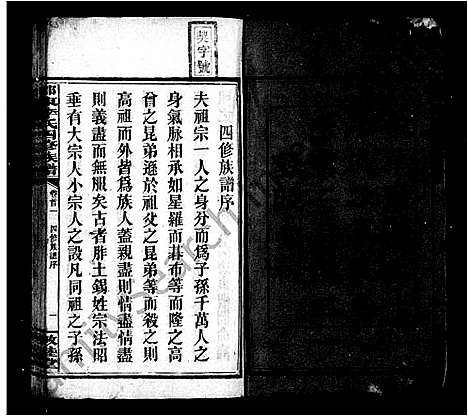 契字號
四修族譜序
夫祖宗一人之身分而爲子孫千萬人之
身氣脉相承如星羅而棊布等而隆之高
曾之昆弟遜於祖父之昆弟等而殺之則
高祖而外皆爲族人蓋親盡則情盡情盡
則義盡而無服矣古者胙土錫姓宗法昭
垂有大宗人小宗人之設凡同祖之子孫
氏四修族譜
卷首一
四修族譜序
一